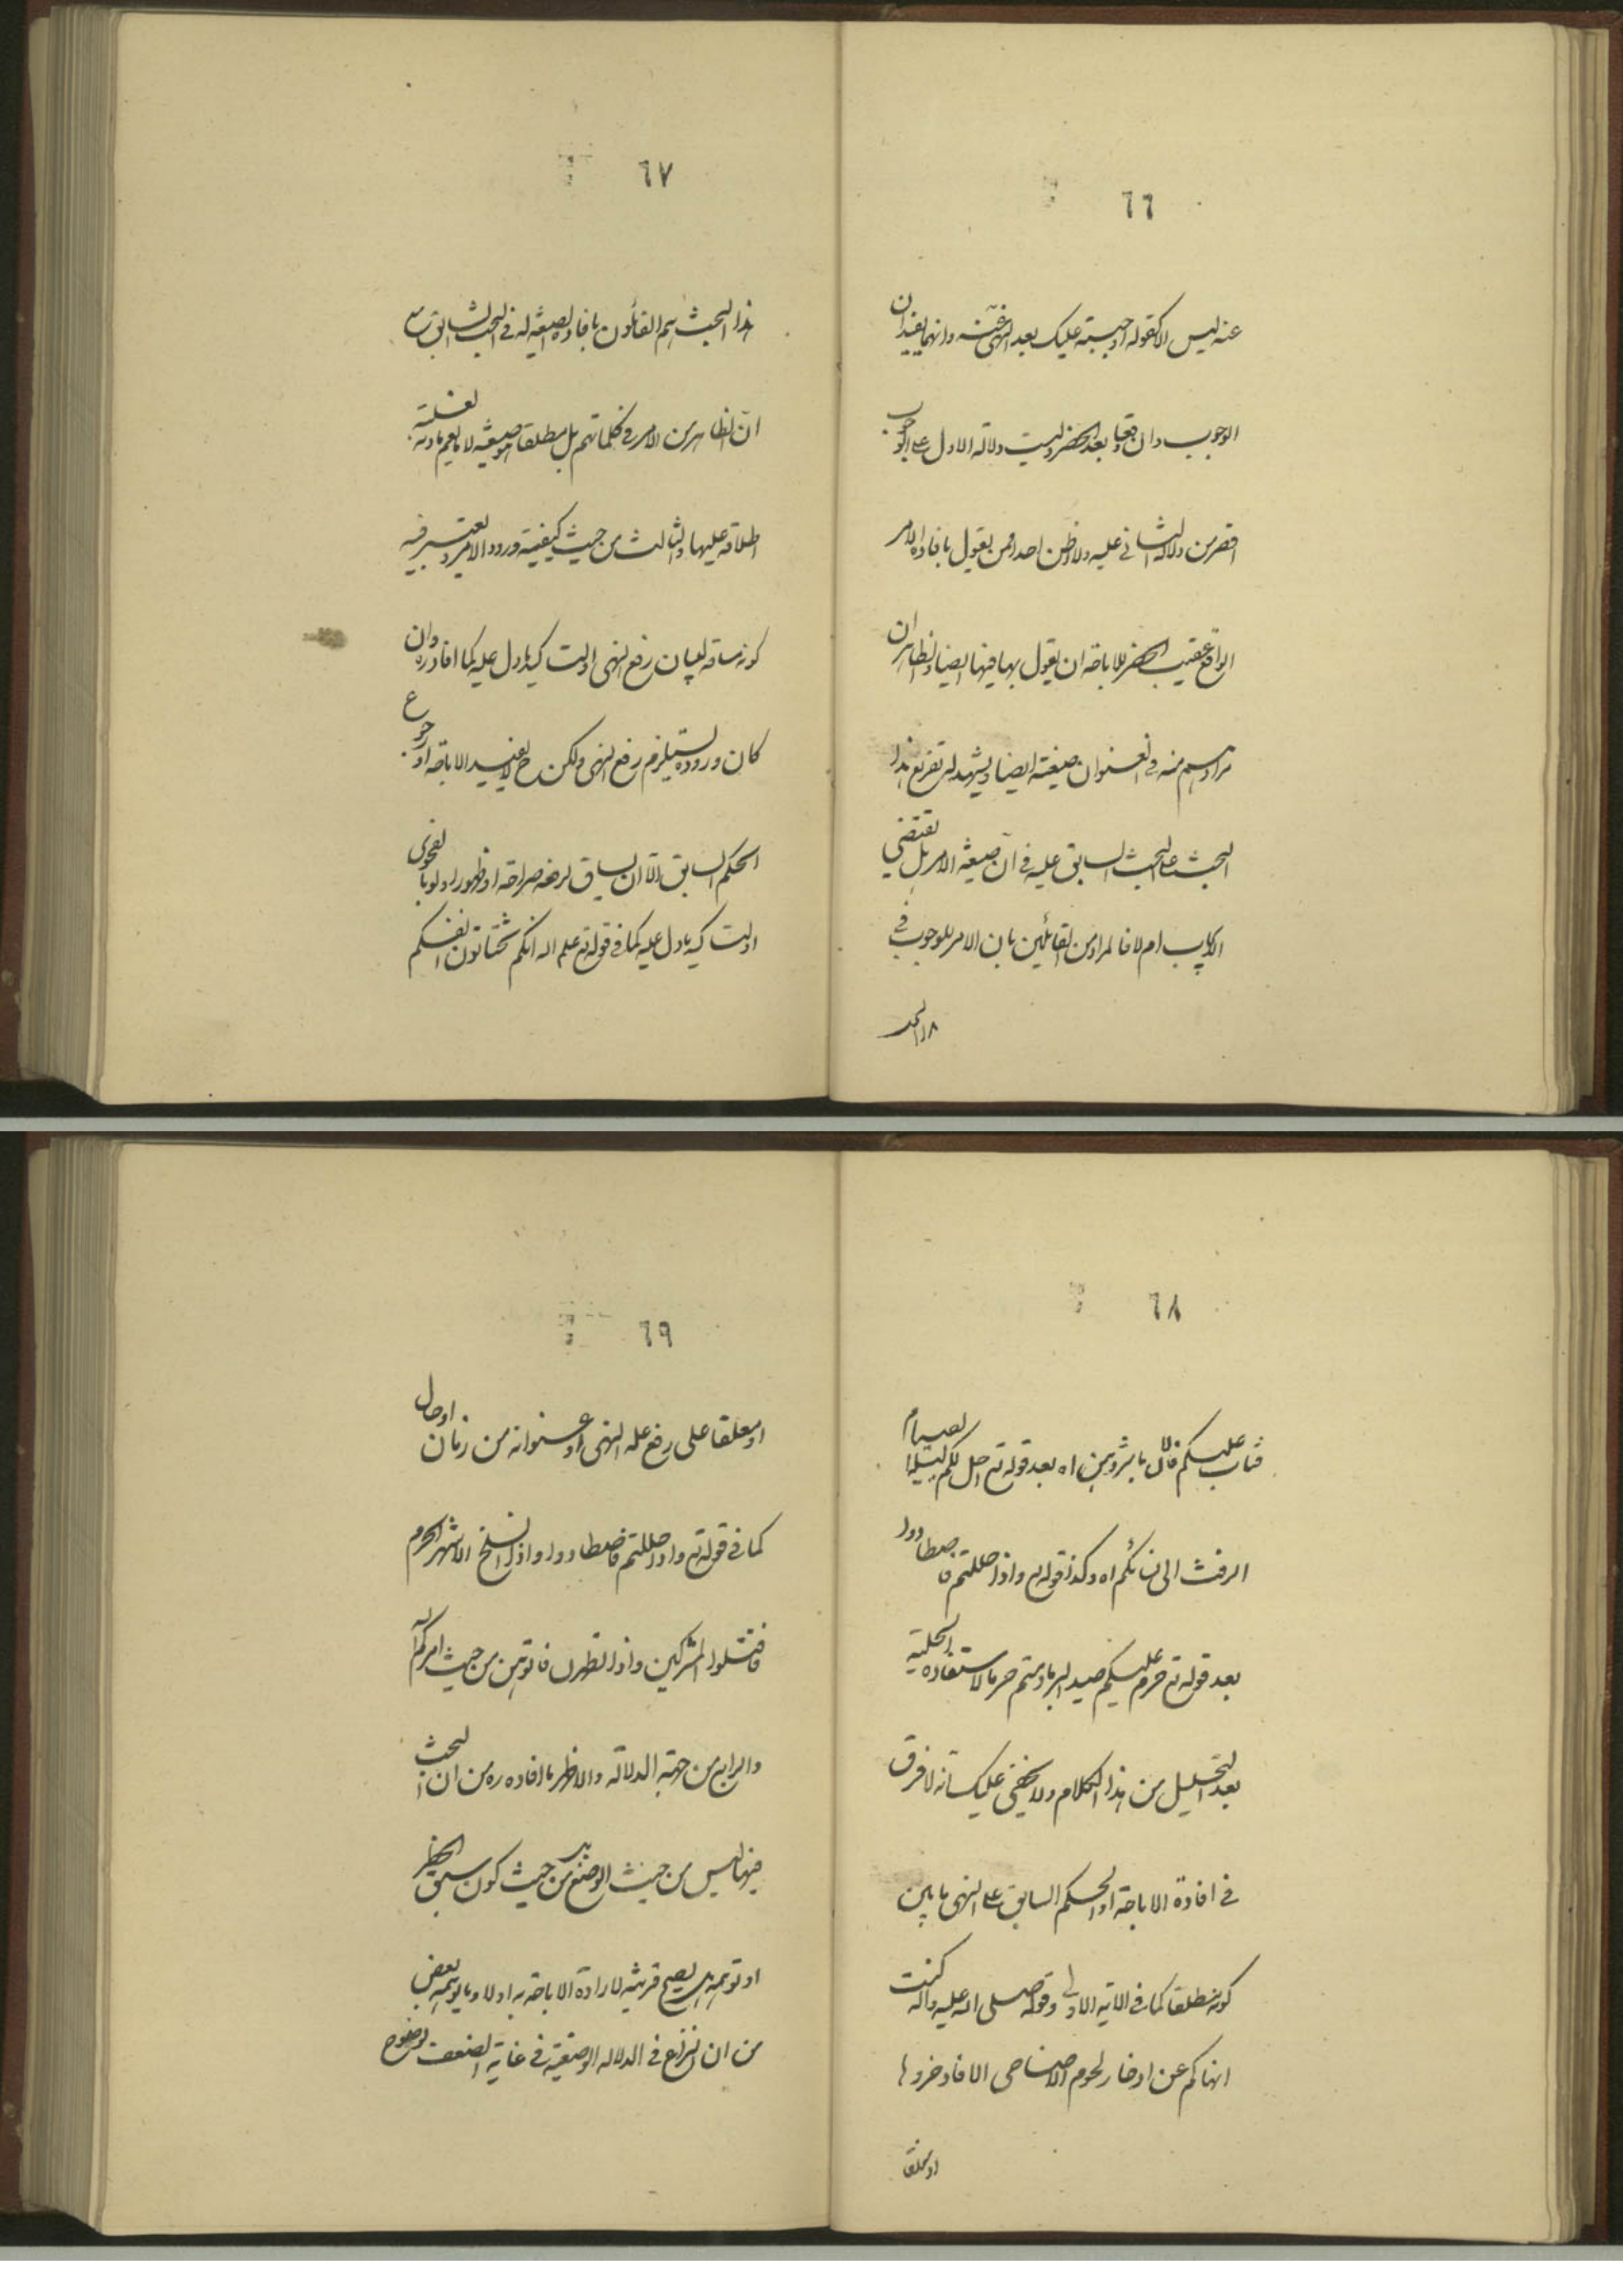 ٦٦
عنه ليس الا كقوله اوجبته عليك بعد النهي عنه وانهما يفيدان
الوجوب وان وقعا بعد الحظر وليست دلالة الاول على الوجوب
اقصر من دلالة الثاني عليه ولا اظن احدا ممن يقول بافادة الامر
الواقع عقيب الحظر للاباحة ان يقول بها فيها ايضا والظاهر ان
مرادهم منه في العنوان صيغته ايضا ويشهد له تفريع هذا
البحث على البحث السابق عليه في ان صيغة الامر بل يقتضي
الايجاب ام لا فالمراد من القائلين بان الامر للوجوب في
٦٧
هذا البحث هم القائلون بافادة الصيغة له في البحث السابق مع
ان الظاهر من الامر في كلماتهم بل مطلقا هو صيغته لا ما يعم مادته لغلبة
اطلاقه عليها والثالث من حيث كيفية ورود الامر ويعتبر فيه
كونه مساقه لبيان رفع النهى او لتأكيد ما دل عليه كما افاده ره وان
كان وروده يستلزم رفع النهى ولكن ح لا يفيد الاباحة او رجوع
الحكم السابق الا ان يساق لرفعه صراحة او ظهورا ولو بالفحوى
او لتأكيد ما دل عليه كما في قوله تع علم الله انكم تختانون انفسكم
٦٨
فتاب عليكم فالان باشروهن اه بعد قوله تع احل لكم ليلة الصيام
الرفث الى نسائكم اه وكذا قوله تع واذا حللتم فاصطادوا
بعد قوله تع حرم عليكم صيد البر ما دمتم حرما لاستفادة الحلية
بعد التحليل من هذا الكلام ولا يخفى عليك انه لا فرق
في افادة الاباحة او الحكم السابق على النهى ما بين
كونه مطلقا كما في الاية الاولى وقوله صلى الله عليه واله كنت
انهاكم عن ادخار لحوم الاضاحى الا فادخروها
او معلقا
٦٩
او معلقا على رفع علة النهى او عنوانه من زمان او حال
كما في قوله تع واذا حللتم فاصطادوا واذا انسلخ الاشهر الحرم
فاقتلوا المشركين واذا تطهرن فاتوهن من حيث امركم الله
والرابع من جهة الدلالة والاظهر ما افاده ره من ان البحث
فيها ليس من حيث الوضع بل من حيث كون سبق الحظر
او توهمه هل يصح قرينة لارادة الاباحة به او لا وما يوهمه بعض
من ان النزاع في الدلالة الوضعية في غاية الضعف لوضوح